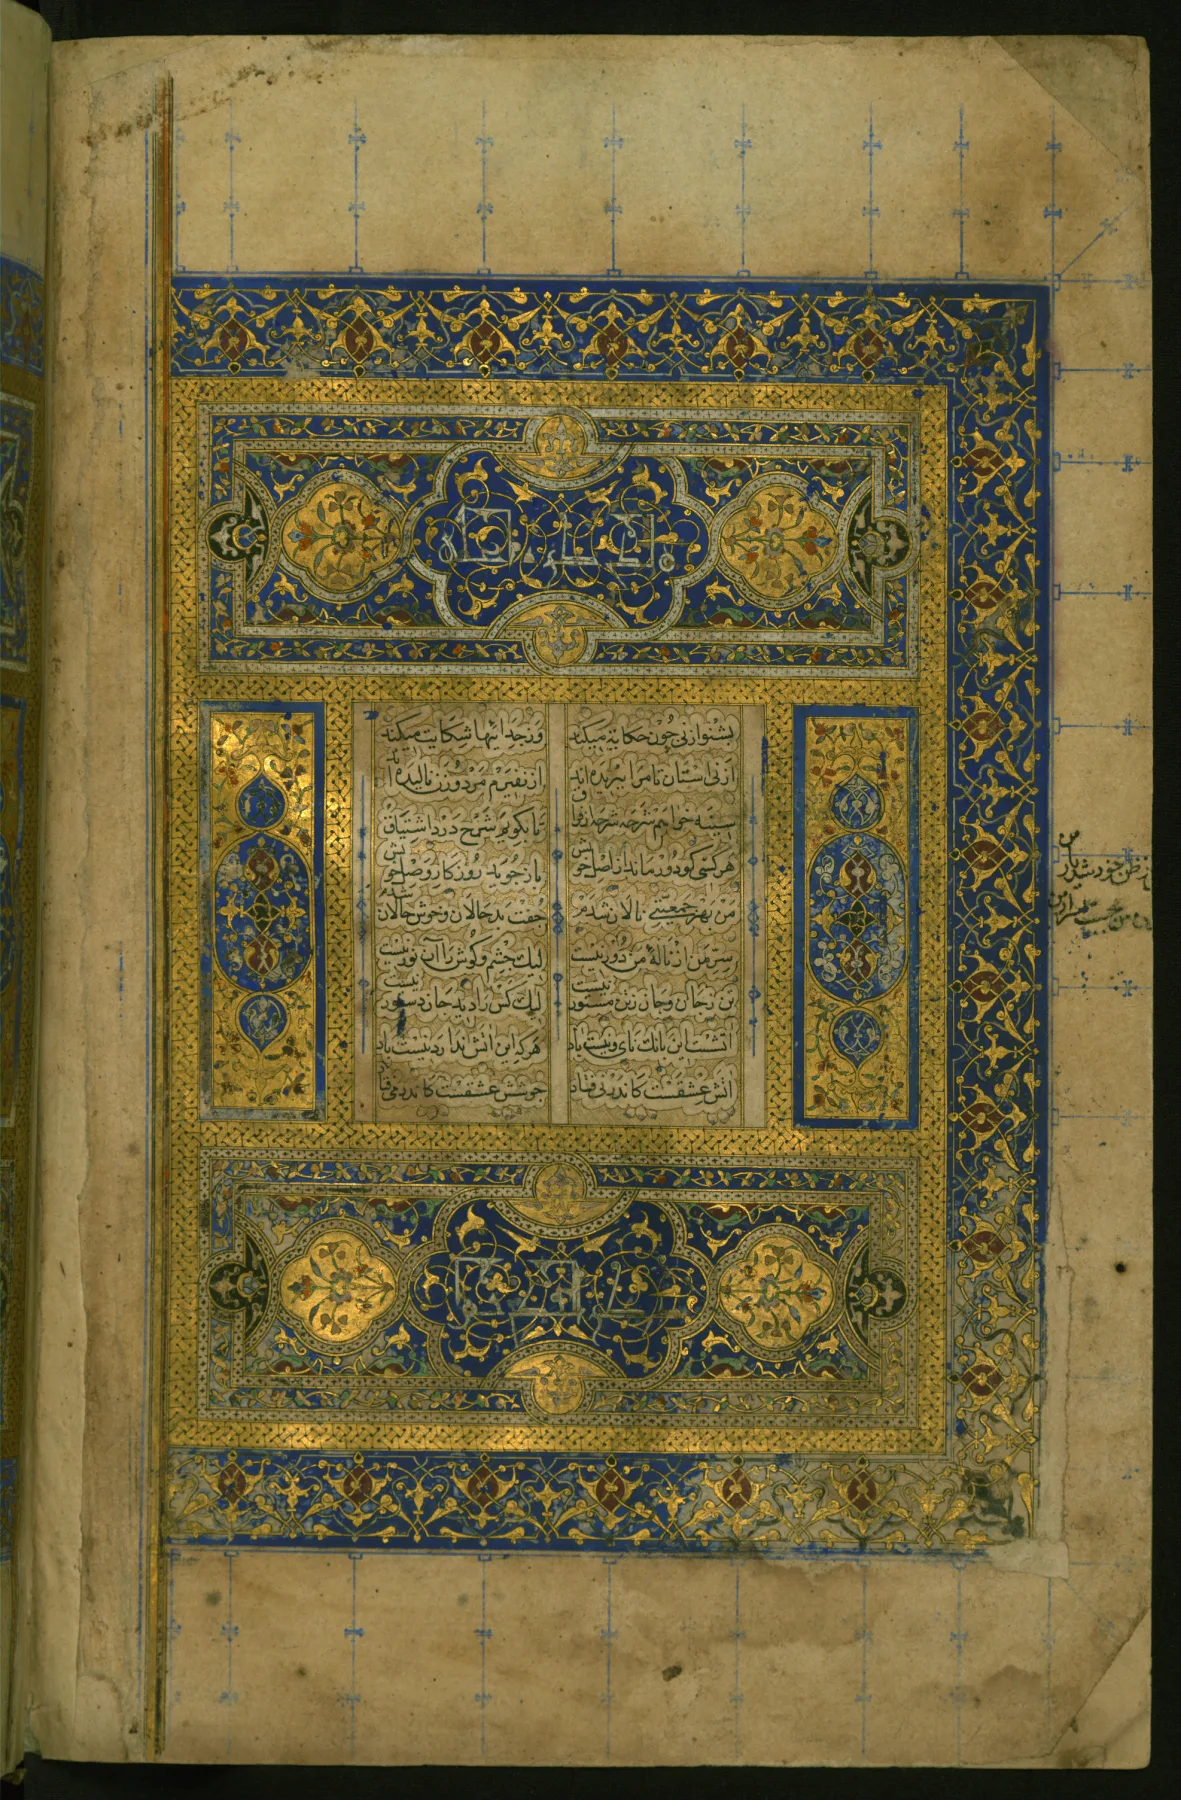 بشنو از نی چون حکایة میکند وز جدائیها شکایت میکند
از نی ستان تا مرا ببریده اند از نفیرم مرد و زن نالیده اند
سینه خواهم شرحه شرحه از فراق تا بکویم شرح درد اشتیاق
هر کسی کو دور ماند از اصل خویش باز جوید روزکار وصل خویش
من بهر جمعیتی نالان شدم جفت بدحالان و خوش حالان شدم
سر من از نالهٔ من دور نیست لیک چشم و کوش را آن نور نیست
تن ز جان و جان ز تن مستور نیست لیک کس را دید جان دستور نیست
آتشست این بانک نای و نیست باد هر که این آتش ندارد نیست باد
آتش عشقست کاندر نی فتاد جوشش عشقست کاندر می فتاد